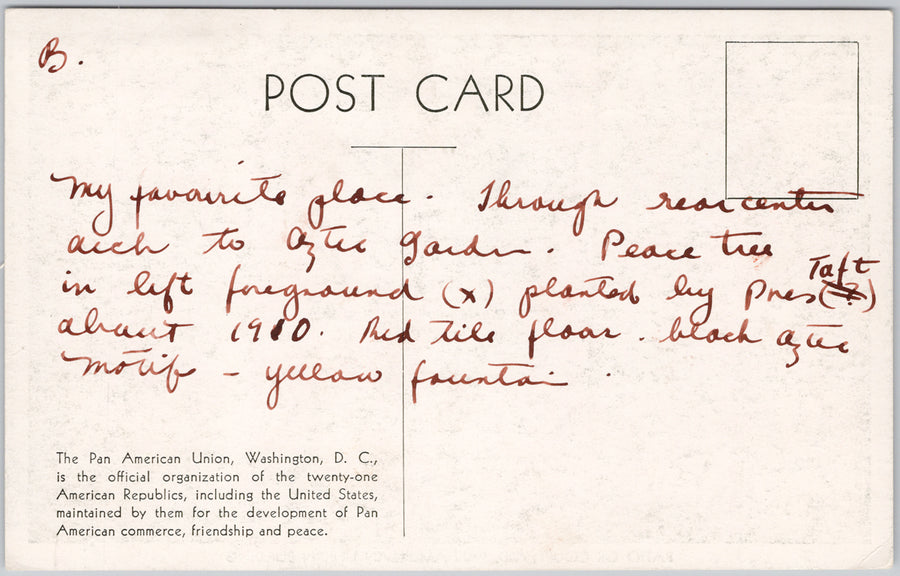 B.
POST CARD
My favourite place. Through rear center
arch to Aztec Garden. Peace tree
in left foreground (x) planted by Pres (?) Taft
about 1910. Red tile floor. black Aztec
motif - yellow fountain.
The Pan American Union, Washington, D. C.,
is the official organization of the twenty-one
American Republics, including the United States,
maintained by them for the development of Pan
American commerce, friendship and peace.